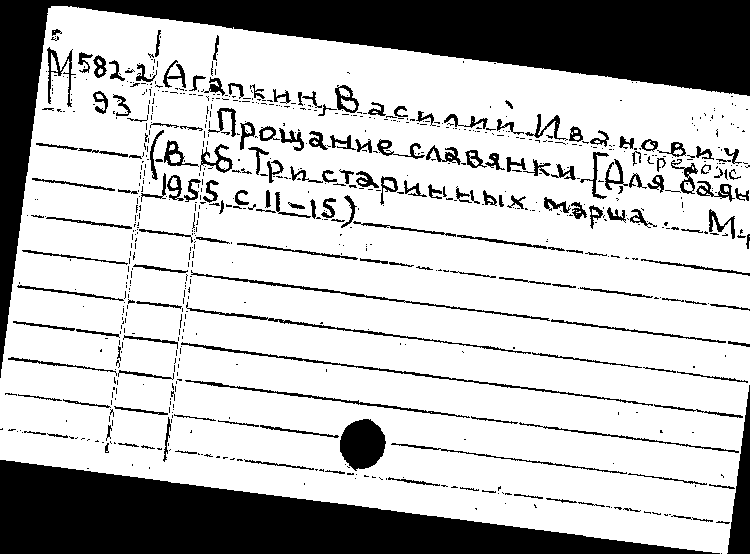 М 582-2 Агапкин, Василий Иванович
93 Прощание славянки. [Для баян
перелож
(В сб. Три старинных марша. М.,
1955, с. 11-15)